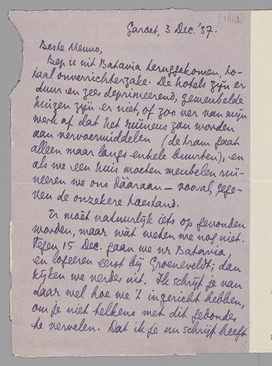 [1012]
Garoet, 3 Dec. '37.
Beste Menno,
Bep is uit Batavia teruggekomen, to-
taal onverrichterzake. De hotels zijn er
duur en zeer deprimeerend, gemeubelde
huizen zijn er niet, of zoo ver van mijn
werk af dat het ruineus zou worden
aan vervoermiddelen (de tram gaat
alleen maar langs enkele buurten), en
als we een huis moeten meubelen rui-
neeren we ons dááraan — vooral tege-
nen de onzekere toestand.
Er moèt natuurlijk iets op gevonden
worden, maar wàt weten we nog niet.
Tegen 15 Dec. gaan we nr Batavia,
en logeeren eerst bij Groeneveldt; dan
kijken we verder uit. Ik schrijf je van
daar wel hoe we 't ingericht hebben,
om je niet telkens met dit gedonder
te vervelen. Dat ik je nu schrijf heeft